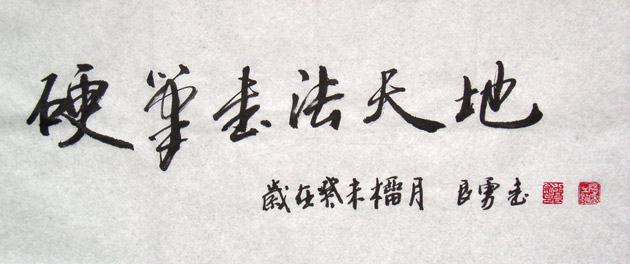 硬筆書法天地
歲在癸未榴月 良勇書